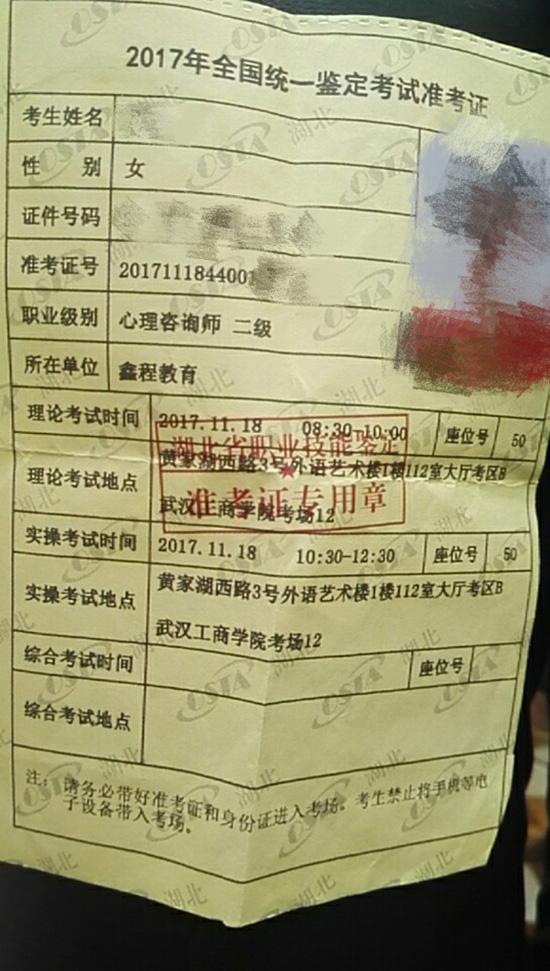 2017年全国统一鉴定考试准考证
考生姓名
性 别 女
证件号码
准考证号 2017111844001
职业级别 心理咨询师 二级
所在单位 鑫程教育
理论考试时间 2017.11.18 08:30-10:00 座位号 50
湖北省职业技能鉴定
理论考试地点 黄家湖西路3号外语艺术楼1楼112室大厅考区B
武汉工商学院考场12
准考证专用章
实操考试时间 2017.11.18 10:30-12:30 座位号 50
实操考试地点 黄家湖西路3号外语艺术楼1楼112室大厅考区B
武汉工商学院考场12
综合考试时间 座位号
综合考试地点
注: 请务必带好准考证和身份证进入考场。考生禁止将手机等电
子设备带入考场。
OSTA 湖北